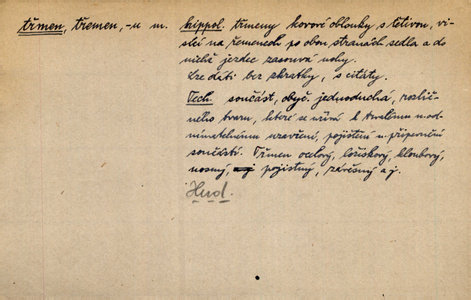 třmen, třemen, -u m. hippol. třmeny kovové oblouky s tětivou, vi-
sící na řemenech po obou stranách sedla a do
nichž jezdec zasouvá nohy.
Lze dáti bez zkratky, s citáty.
Tech. součást, obyč. jednoduchá, rozlič-
ného tvaru, které se užívá k trvalému n. od-
nímatelnému uzavření, pojištění n. připevnění
součástí. Třmen ocelový, ložiskový, kloubový,
nosný, pojistný, závěsný a j.
Hud.